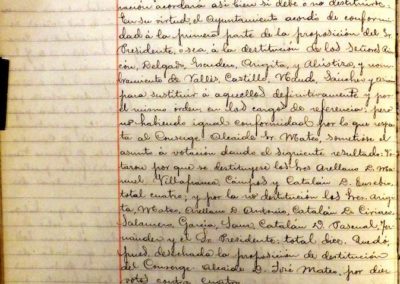 nación acordará así bien si debe o no destituirse.
En su virtud, el Ayuntamiento acordó de conformi-
dad á la primera parte de la proposición del Sr.
Presidente, o sea, á la destitución de los Señores
cón, Delgado, Angita, y Alústiza, y nom-
bramiento de Vallés, Castillo, Sánchez y
para sustituir á aquellos definitivamente y por
el mismo orden, en los cargos de referencia; pero
no habiendo igual conformidad por lo que respec-
ta al Conserge Alcaide Sr. Mateo, sometióse el
asunto á votación dando el siguiente resultado: Vo-
taron por que se destituyera los Sres Arellano D. Ma-
nuel, Villafranca, Campos y Catalán D. Eusebio,
total cuatro; y por la no destitución los Sres.
ta, Mateo, Arellano D. Antonio, Catalán D. Ciriaco,
Salamero, García, Sanz, Catalán D. Pascual,
y el Sr. Presidente, total diez. Quedó,
pues, desechada la proposición de destitución
del Conserge Alcaide D. José Mateo, por diez
votos contra cuatro